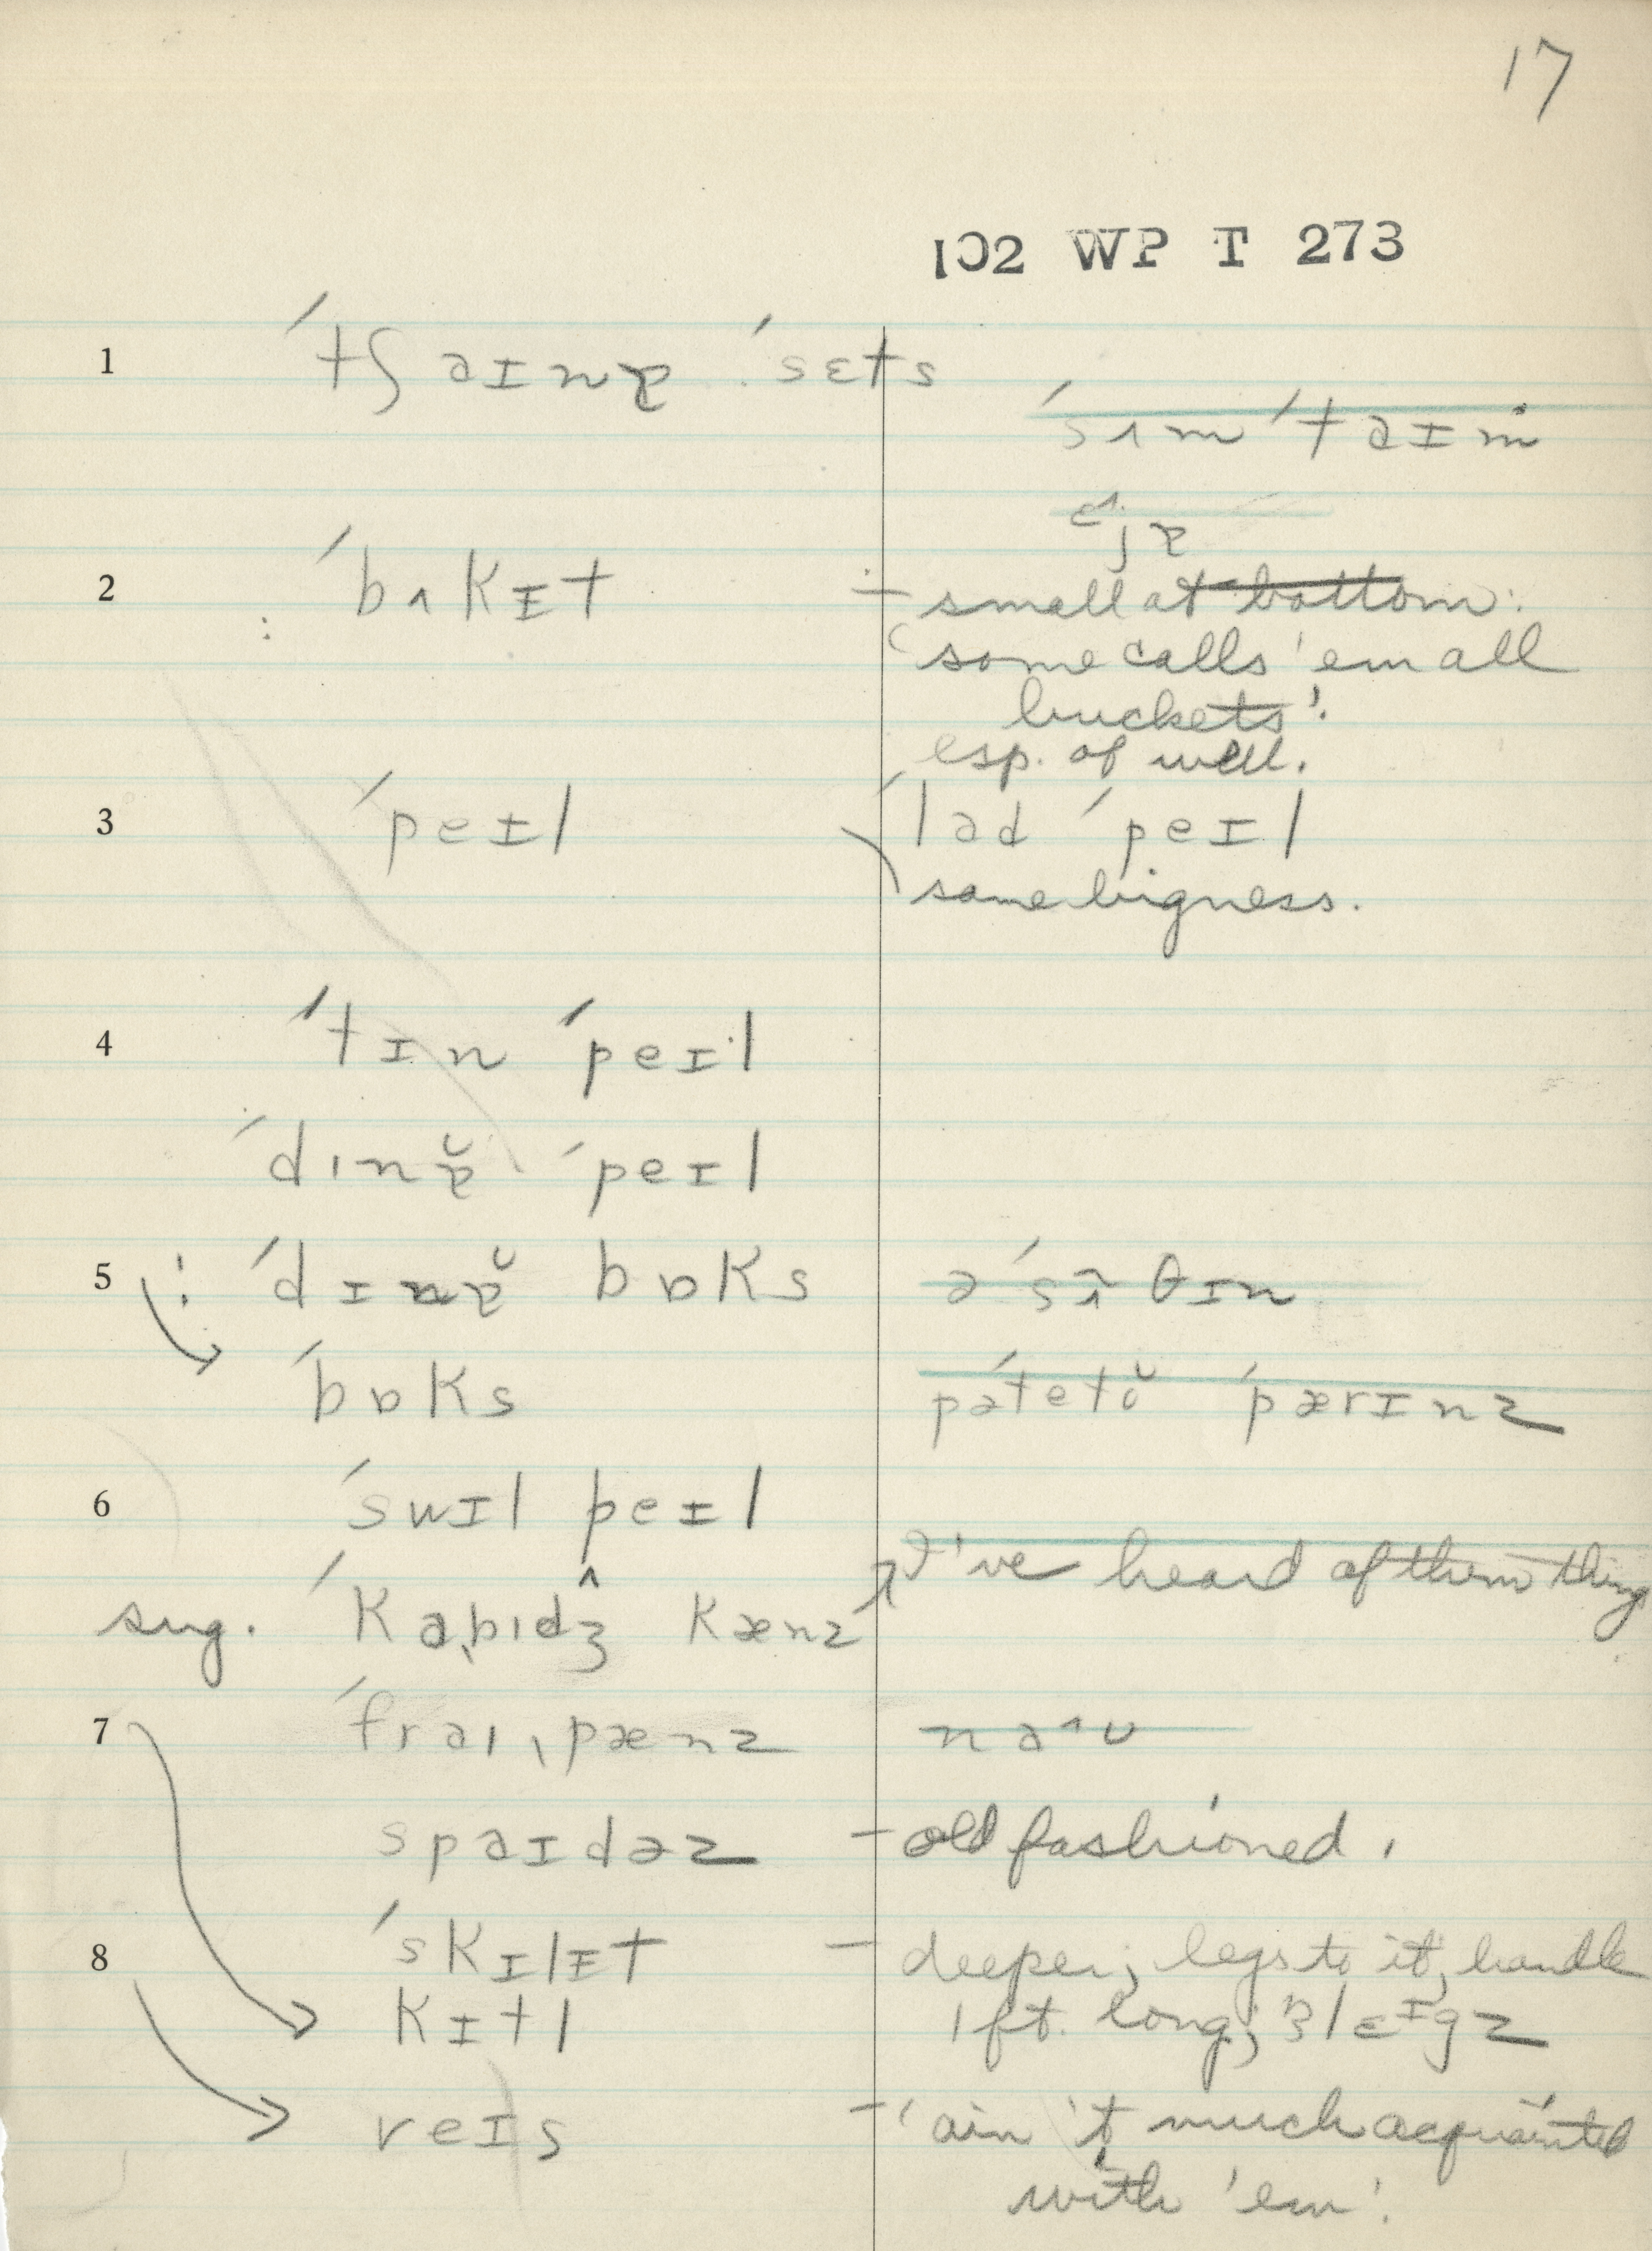 17
102 WP T 273
1 ˈtʃaɪnɚ ˈsɛts
ˈsʌmˈtaɪm
2 ˈbʌkɪt – small at bottom.
'some calls 'em all
buckets'.
esp. of well.
3 ˈpeɪl ˈlad ˈpeɪl
same bigness.
4 ˈtɪn ˈpeɪl
ˈdɪnɚ̆ ˈpeɪl
5 : ˈdɪnɚ̆ bɒks
ˈbɒks pəˈtetŏ ˈpærɪnz
6 ˈswɪl peɪl
'I've heard of them thing
sug. ˈkabɪdʒ kænz
7 ˈfraɪˌpænz
spaɪdəz – old fashioned.
8 ˈskɪlɪt – deeper; legs to it, handle
kɪtl 1 ft. long; 3 lɛɪgz
veɪs – 'ain't much acquainted
with 'em'.